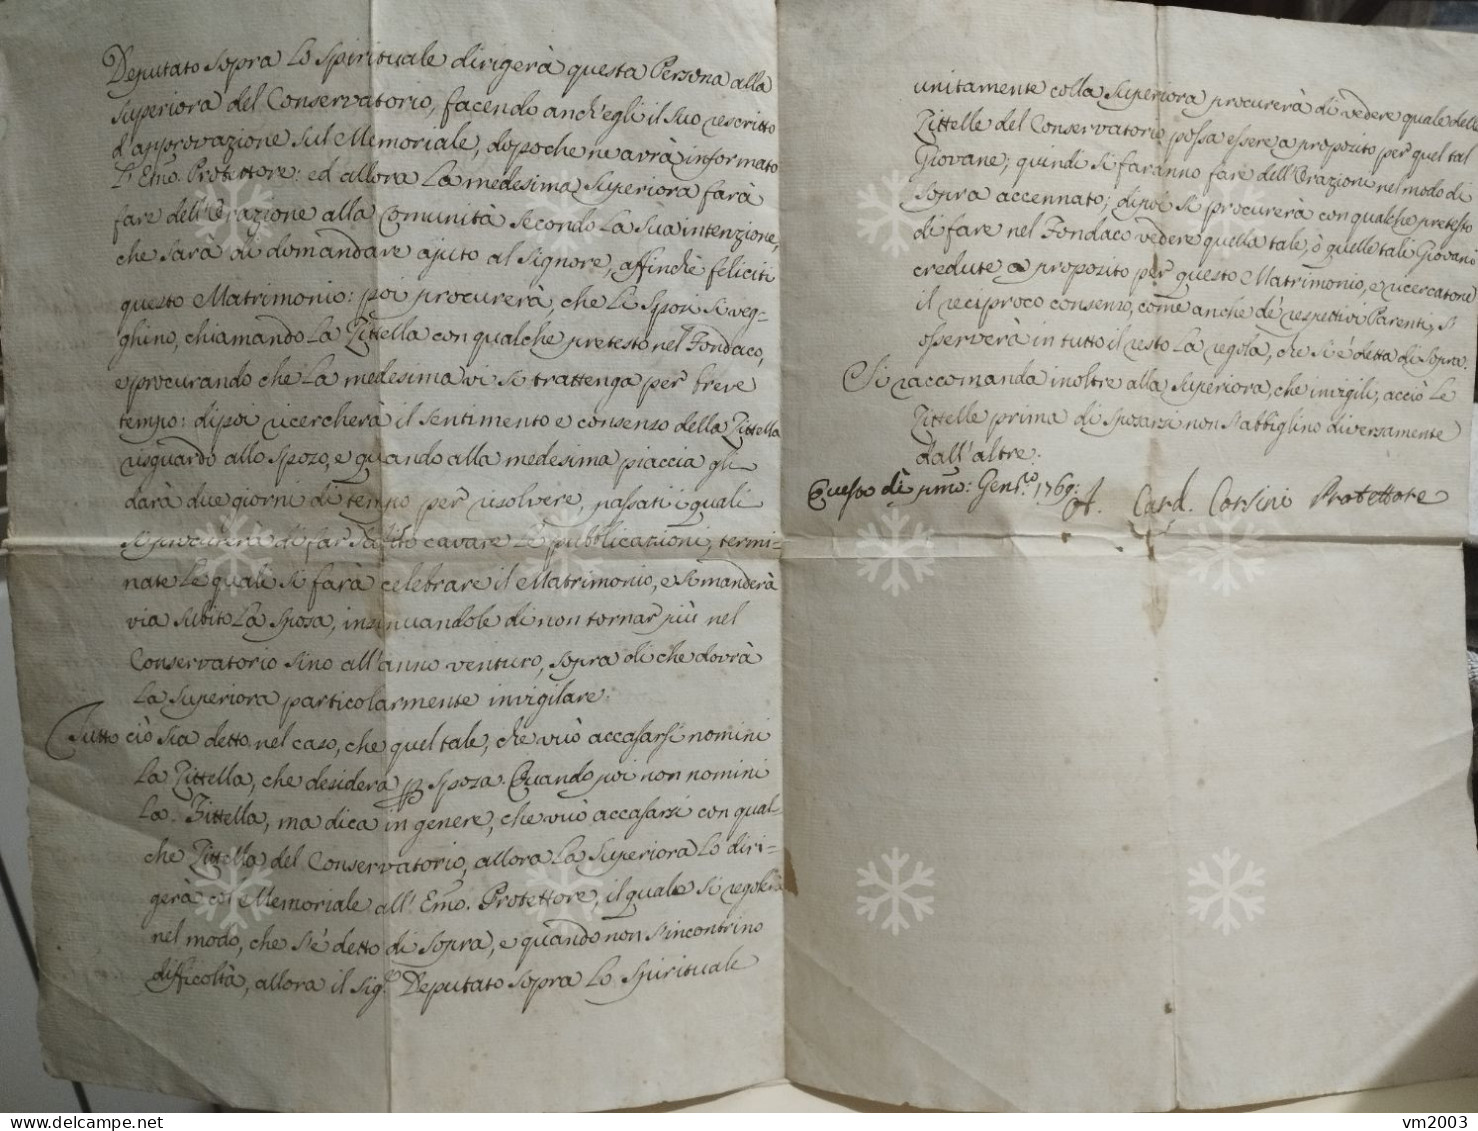 Deputato sopra lo Spirituale dirigerà questa Persona alla
Superiora del Conservatorio, facendo anch'egli il suo rescritto
d'approvazione sul Memoriale, dopoche ne avrà informato
l'Emo. Protettore: ed allora la medesima Superiora farà
fare dell'Orazione alla Comunità secondo la sua intenzione,
che sarà di domandare ajuto al Signore, affinchè feliciti
questo Matrimonio: poi procurerà, che li Sposi si veg=
ghino, chiamando la Zittella con qualche pretesto nel Fondaco,
e procurando che la medesima vi si trattenga per breve
tempo: dipoi ricercherà il sentimento e consenso della Zittella
risguardo allo Sposo, e quando alla medesima piaccia gli
darà due giorni di tempo per risolvere, passati i quali
si procurerà di far subito cavare le pubblicazioni, termi=
nate le quali si farà celebrare il Matrimonio, e si manderà
via subito la Sposa, insinuandole di non tornar più nel
Conservatorio sino all'anno venturo, sopra di che dovrà
la Superiora particolarmente invigilare.
Tutto ciò sia detto nel caso, che quel tale, che vuò accasarsi nomini
la Zittella, che desidera p Sposa. Quando poi non nomini
la Zittella, ma dica in genere, che vuò accasarsi con qual=
che Zittella del Conservatorio, allora la Superiora lo diri=
gerà col Memoriale all'Emo. Protettore, il quale si regolerà
nel modo, che s'è detto di sopra, e quando non s'incontrino
difficoltà, allora il Sigr. Deputato sopra lo Spirituale
unitamente colla Superiora procurerà di vedere quale delle
Zittelle del Conservatorio possa essere a proposito per quel tal
Giovane; quindi si faranno fare dell'Orazioni nel modo di
sopra accennato; dipoi si procurerà con qualche pretesto
di fare nel Fondaco vedere quella tale, ò quelle tali Giovani
credute a proposito per questo Matrimonio, e ricercatone
il reciproco consenso, come anche de' respettivi Parenti, si
osserverà in tutto il resto la regola, che si è detta di sopra.
Si raccomanda inoltre alla Superiora, che invigili, acciò le
Zittelle prima di sposarsi non s'abbiglino diversamente
dall'altre.
Questo dì pmo: Genro. 1769.
A. Card. Corsini Protettore
vm2003